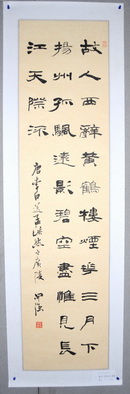 故人西辭黃鶴樓煙華三月下
揚州孤颿遠影碧空盡惟見長
江天際流
唐李白送孟浩然之廣陵